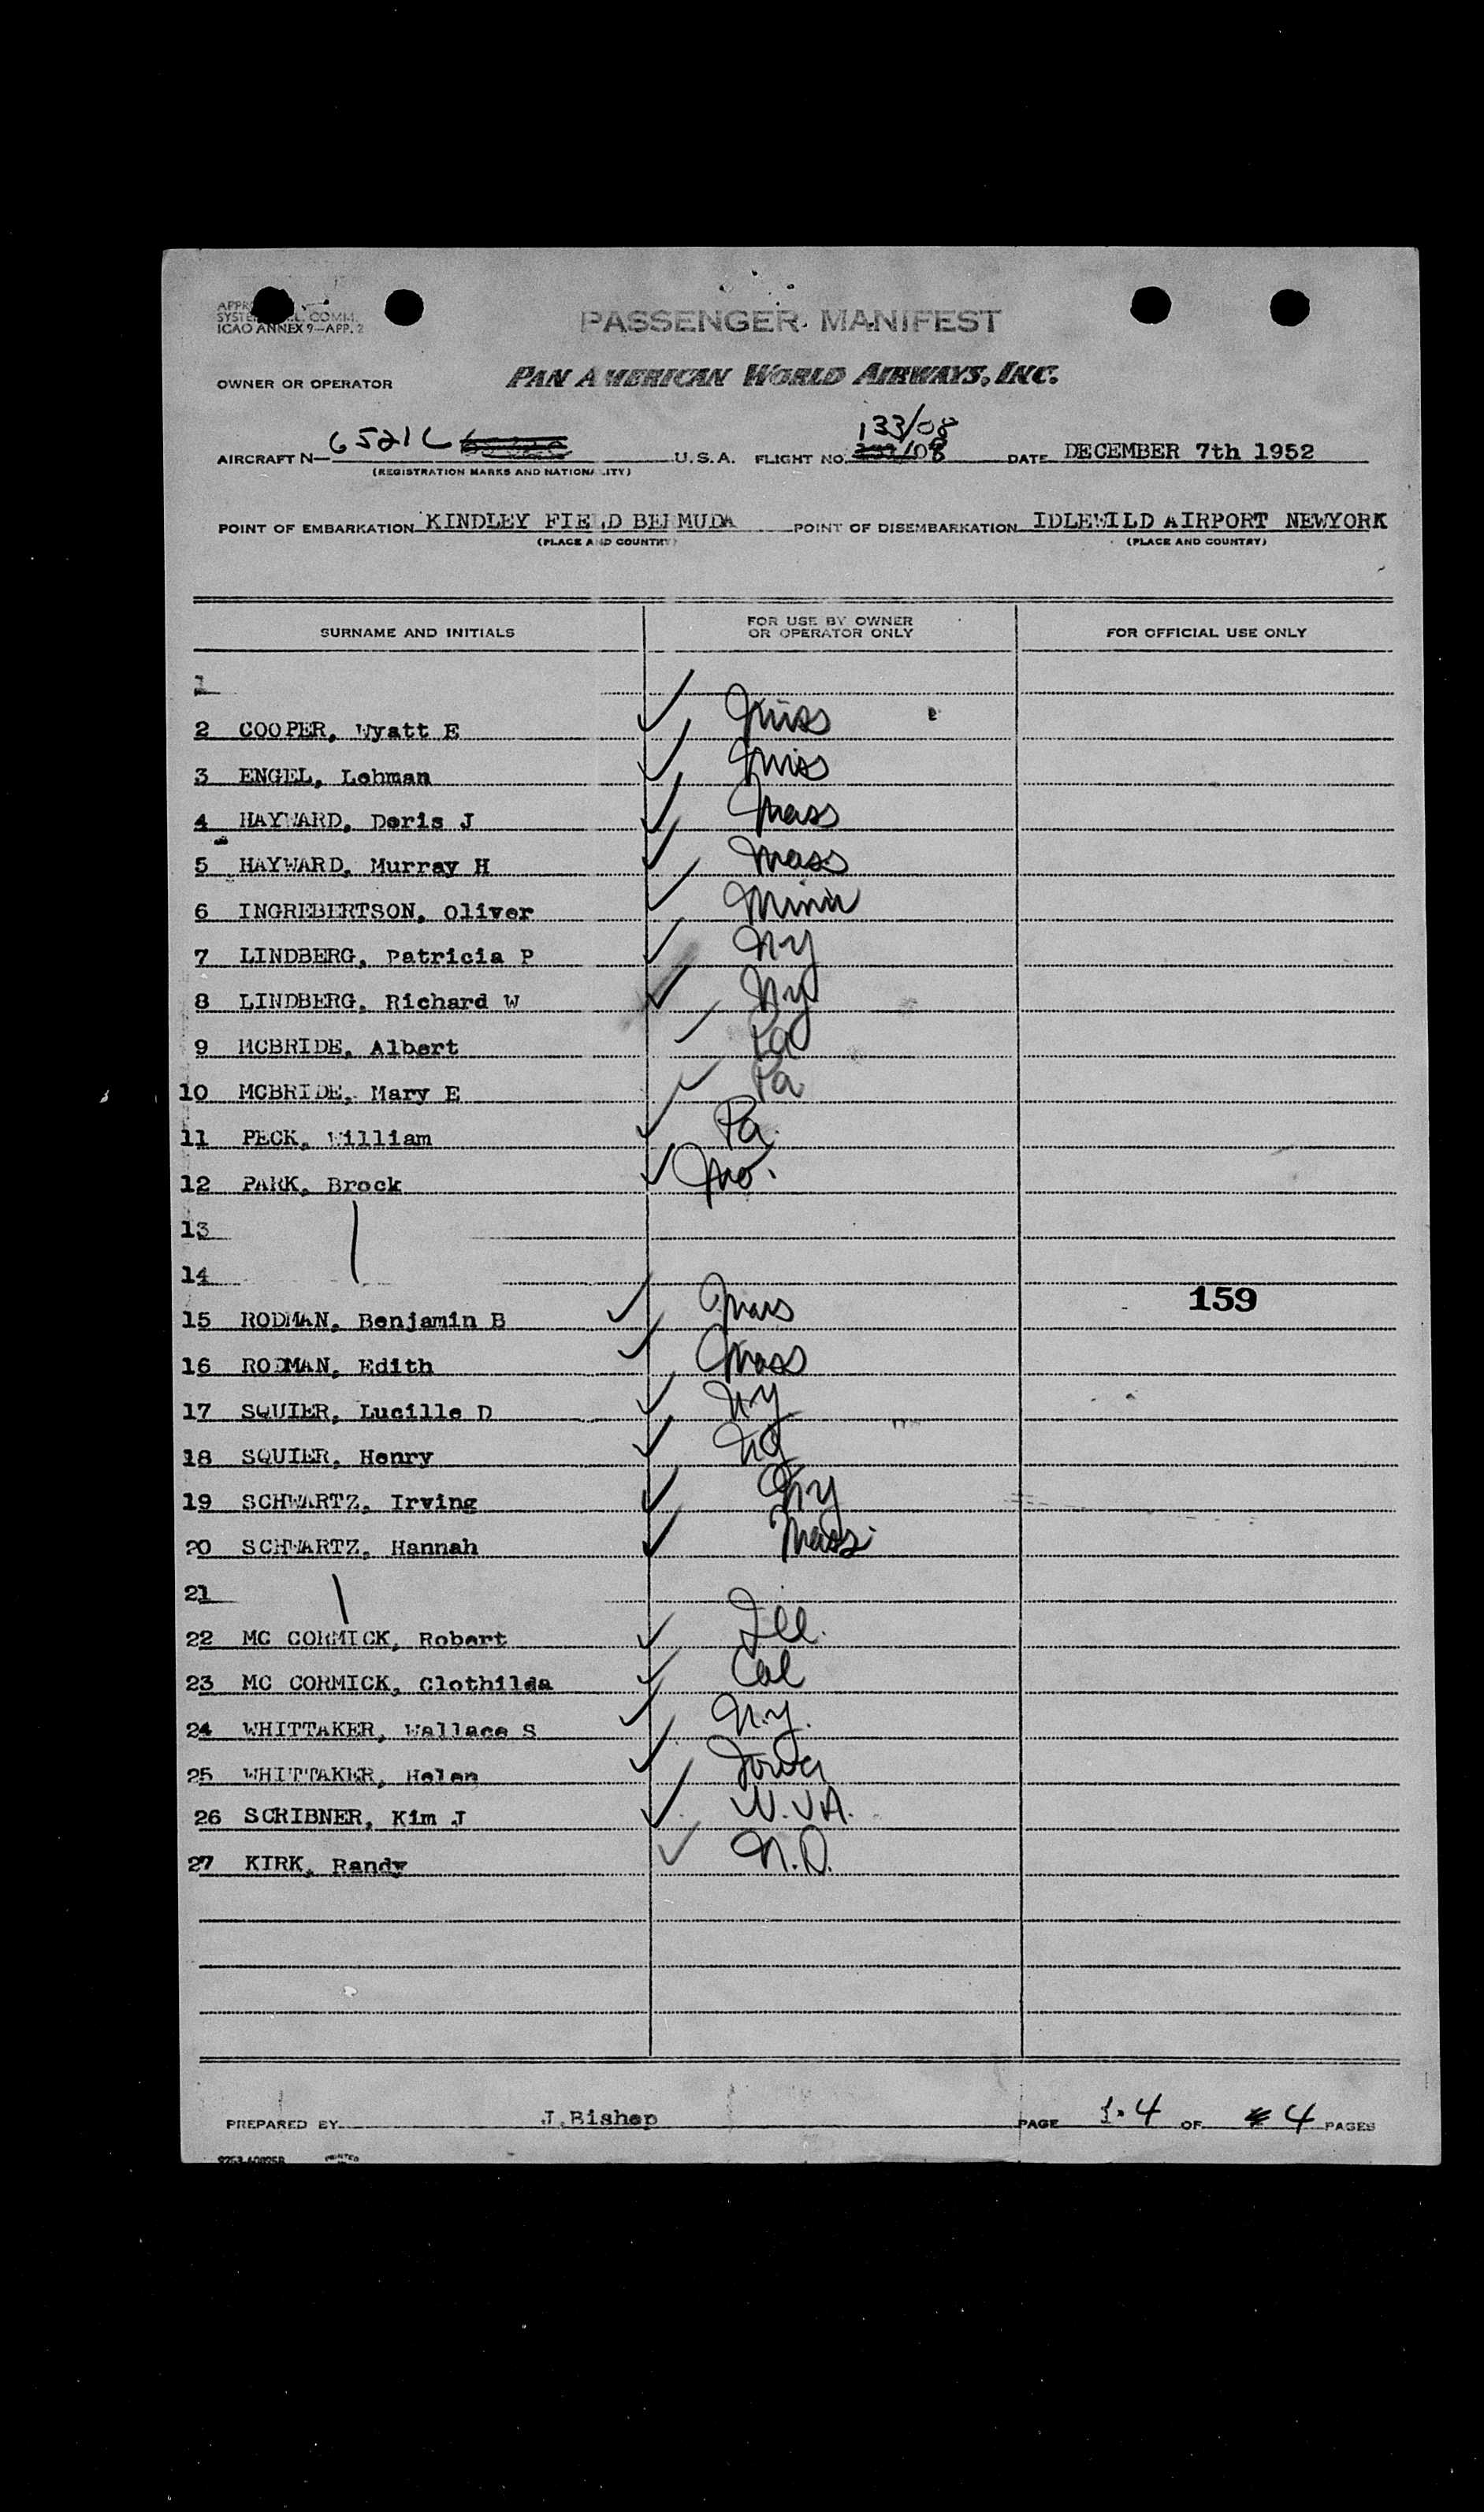 ICAO ANNEX 9—APP. 2
PASSENGER MANIFEST
OWNER OR OPERATOR PAN AMERICAN WORLD AIRWAYS, INC.
133/08
AIRCRAFT N— 6521C U.S.A. FLIGHT NO. /08 DATE DECEMBER 7th 1952
(REGISTRATION MARKS AND NATIONALITY)
POINT OF EMBARKATION KINDLEY FIELD BERMUDA POINT OF DISEMBARKATION IDLEWILD AIRPORT NEWYORK
(PLACE AND COUNTRY) (PLACE AND COUNTRY)
SURNAME AND INITIALS FOR USE BY OWNER OR OPERATOR ONLY FOR OFFICIAL USE ONLY
1 ✓
2 COOPER, Wyatt E ✓ Miss
3 ENGEL, Lehman ✓ Miss
4 HAYWARD, Doris J ✓ Mass
5 HAYWARD, Murray H ✓ Mass
6 INGREBERTSON, Oliver ✓ Minn
7 LINDBERG, Patricia P ✓ NY
8 LINDBERG, Richard W ✓ NY
9 MCBRIDE, Albert ✓ Pa
10 MCBRIDE, Mary E ✓ Pa
11 PECK, William ✓ Pa.
12 PARK, Brock ✓ Mo.
13
14
159
15 RODMAN, Benjamin B ✓ Mass
16 RODMAN, Edith ✓ Mass
17 SQUIER, Lucille D ✓ NY
18 SQUIER, Henry ✓ NY
19 SCHWARTZ, Irving ✓ NY
20 SCHWARTZ, Hannah ✓ Mass.
21
22 MC CORMICK, Robert ✓ Ill.
23 MC CORMICK, Clothilda ✓ Cal
24 WHITTAKER, Wallace S ✓ N.Y.
25 WHITTAKER, Helen ✓ Iowa
26 SCRIBNER, Kim J ✓ W.VA.
27 KIRK, Randy ✓ N.D.
PREPARED BY J.Bishop PAGE 4 OF 4 PAGES